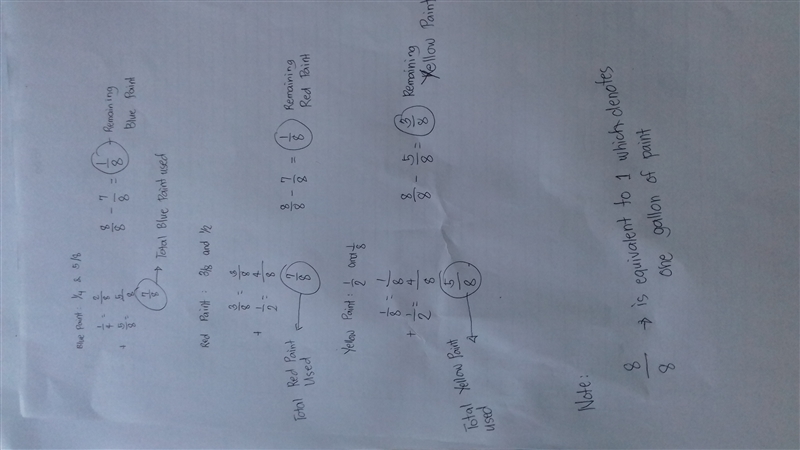 Blue Paint: 1/4 & 5/8
1/4 = 2/8
+ 5/8 = 5/8
7/8 → Total Blue Paint used
8/8 - 7/8 = 1/8 → Remaining
Blue Paint
Red Paint: 3/8 and 1/2
3/8 = 3/8
+ 1/2 = 4/8
7/8
Total Red Paint
Used
8/8 - 7/8 = 1/8 Remaining
Red Paint
Yellow Paint: 1/2 and 1/8
1/8 = 1/8
+ 1/2 = 4/8
5/8
Total Yellow Paint
used
8/8 - 5/8 = 3/8 Remaining
Yellow Paint
Note:
8/8 → is equivalent to 1 which denotes
one gallon of paint